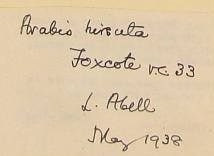 Arabis hirsuta
Foxcote v.c. 33
L. Abell
May 1938